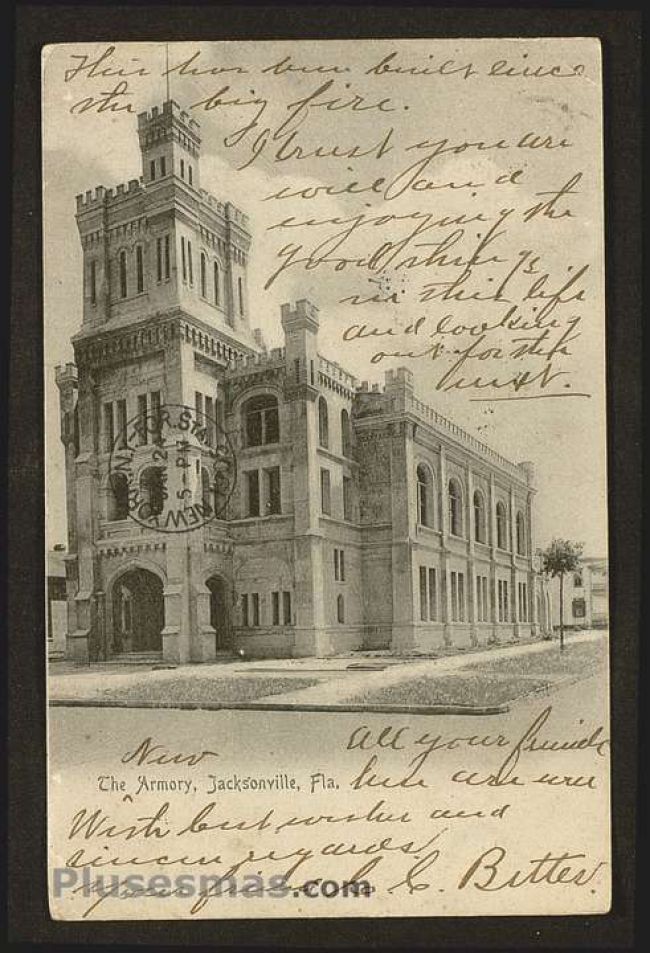 This has been built since
the big fire.
I trust you are
well and
enjoying the
good things
in this life
and looking
out for the
next.
FOR. STA.
5-PM
NEW
New
The Armory, Jacksonville, Fla.
All your friends
here are well
With best wishes and
sincere regards.
your friend C. Bitter.
Plusesmas.com